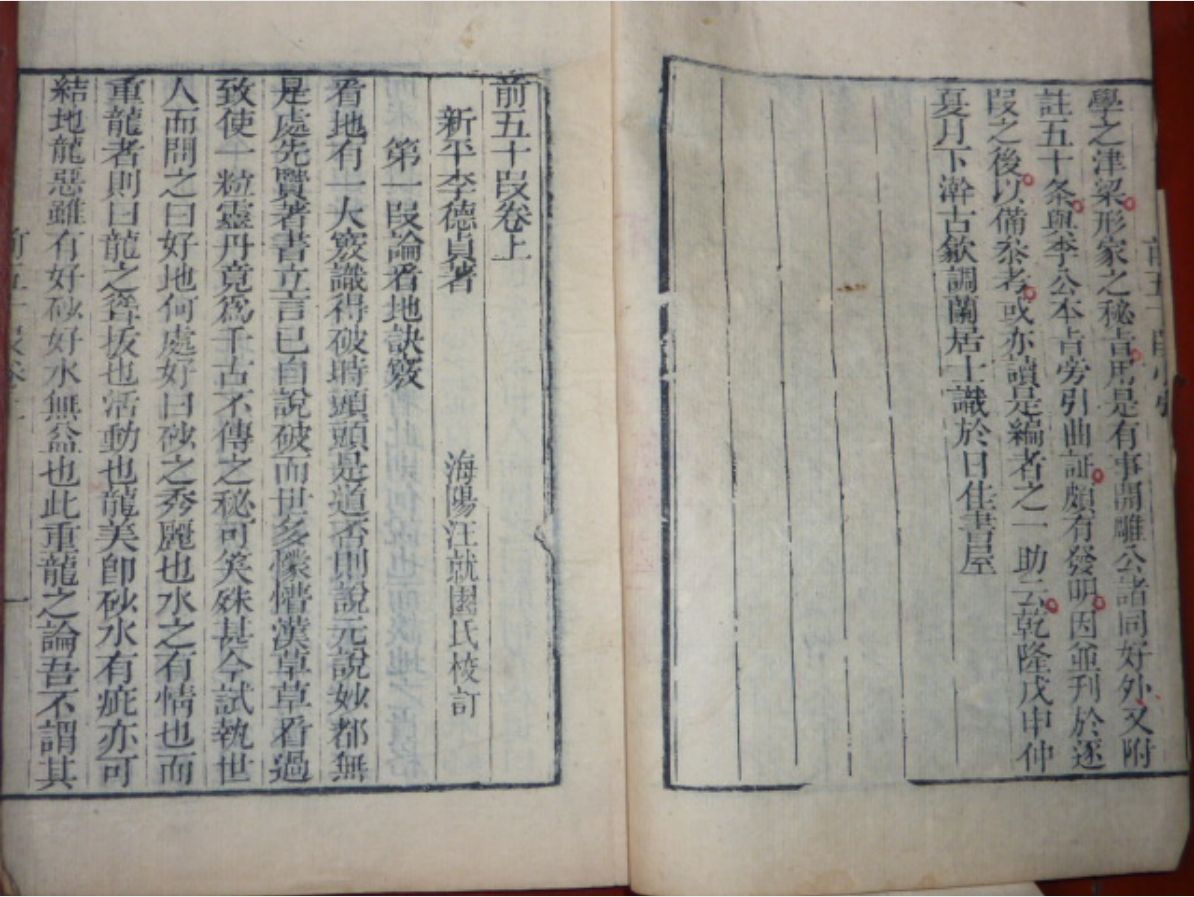 學之津梁形家之秘旨用是有事開雕公諸同好外又附
註五十条與李公本旨旁引曲証頗有發明因並刊於逐
段之後以備叅考或亦讀是編者之一助云乾隆戊申仲
夏月下澣古歙調蘭居士識於日佳書屋
前五十段卷上
新平李德貞著 海陽汪就園氏校訂
第一段論看地訣竅
看地有一大竅識得破時頭頭是道否則說元說妙都無
是處先賢著書立言已自說破而世多懞懵漢草草看過
致使一粒靈丹竟爲千古不傳之秘可笑殊甚今試執世
人而問之曰好地何處好曰砂之秀麗也水之有情也而
重龍者則曰龍之聳拔也活動也龍美卽砂水有疵亦可
結地龍惡雖有好砂好水無益也此重龍之論吾不謂其
前五十段卷上 一